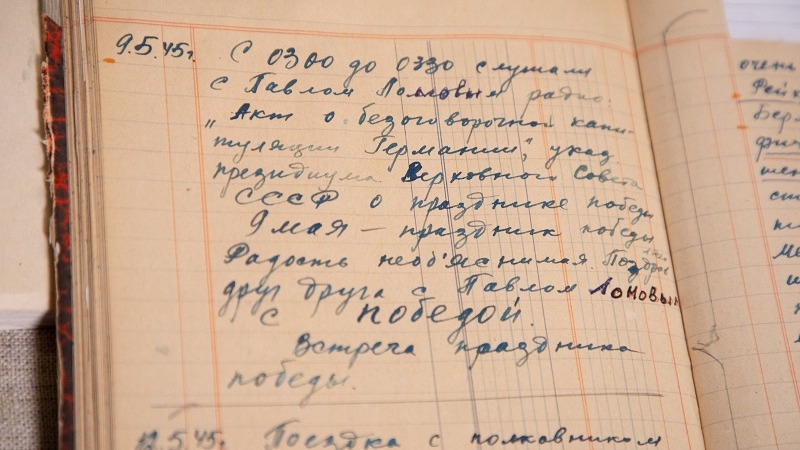 9.5.45г. С 0300 до 0330 слушали
с Павлом Ломовым радио.
„Акт о безоговорочной капи-
туляции Германии", указ.
президиума Верховного Совета
СССР о празднике победы
9 мая — праздник победы
Радость необ'яснимая. Поздрав
друг друга с Павлом Ломовым
с победой.
Встреча праздника
победы.
12.5.45г. Поездка с полковником
очень
Рейх
Бер